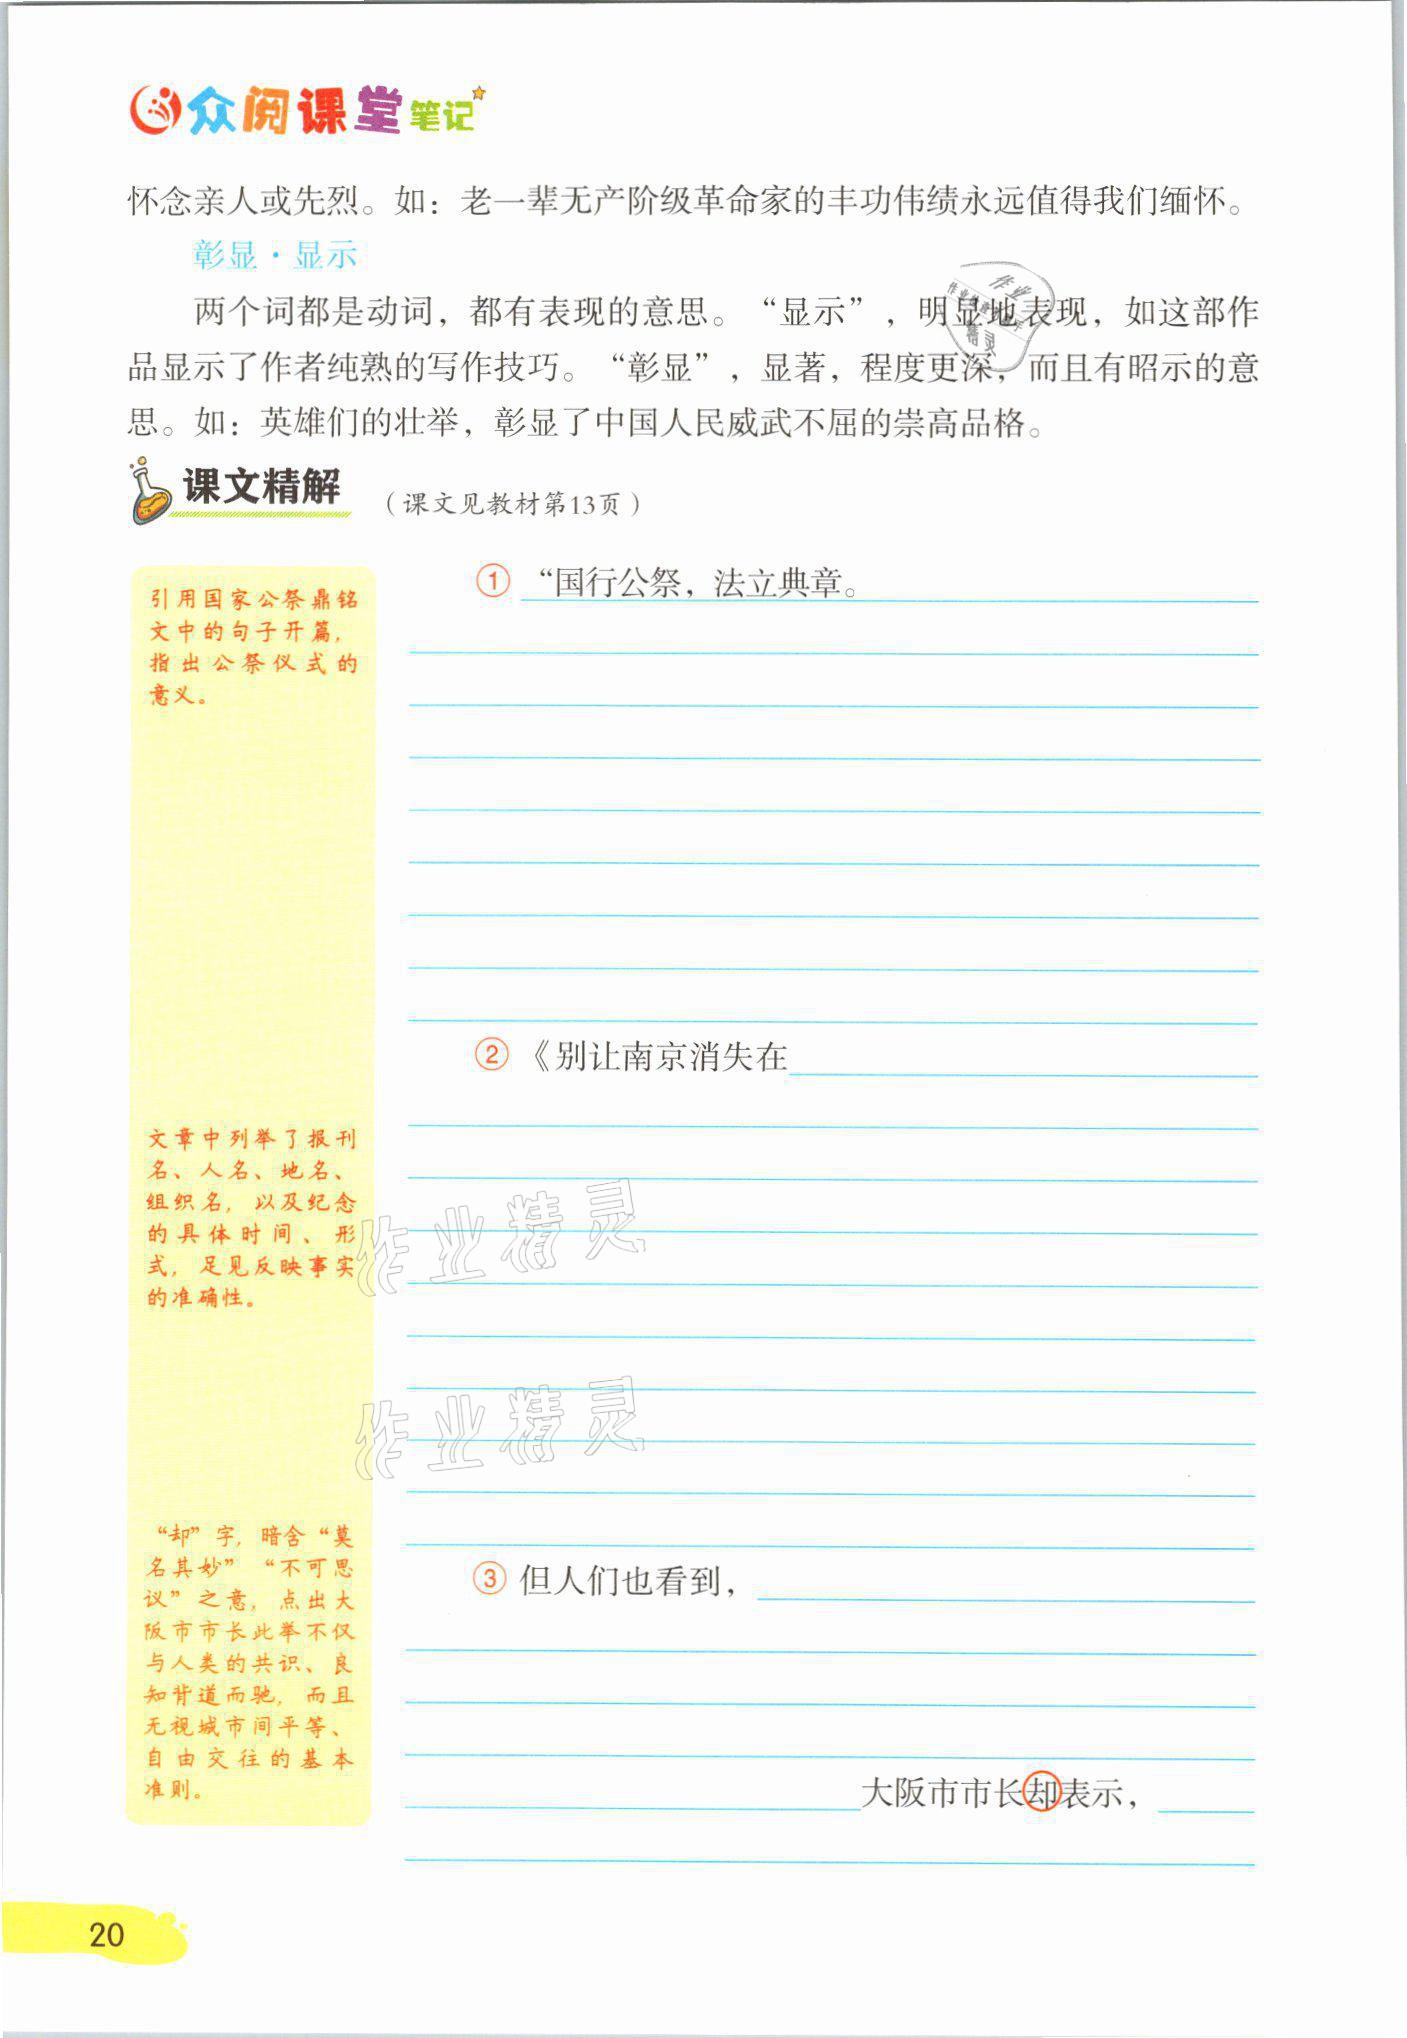 众阅课堂笔记
怀念亲人或先烈。如：老一辈无产阶级革命家的丰功伟绩永远值得我们缅怀。
彰显·显示
两个词都是动词，都有表现的意思。“显示”，明显地表现，如这部作
品显示了作者纯熟的写作技巧。“彰显”，显著，程度更深，而且有昭示的意
思。如：英雄们的壮举，彰显了中国人民威武不屈的崇高品格。
课文精解（课文见教材第13页）
引用国家公祭鼎铭
文中的句子开篇，
指出公祭仪式的
意义。
① “国行公祭，法立典章。
② 《别让南京消失在
文章中列举了报刊
名、人名、地名、
组织名，以及纪念
的具体时间、形
式，足见反映事实
的准确性。
作业精灵
作业精灵
“却”字，暗含“莫
名其妙”“不可思
议”之意，点出大
阪市市长此举不仅
与人类的共识、良
知背道而驰，而且
无视城市间平等、
自由交往的基本
准则。
③ 但人们也看到，
大阪市市长却表示，
20